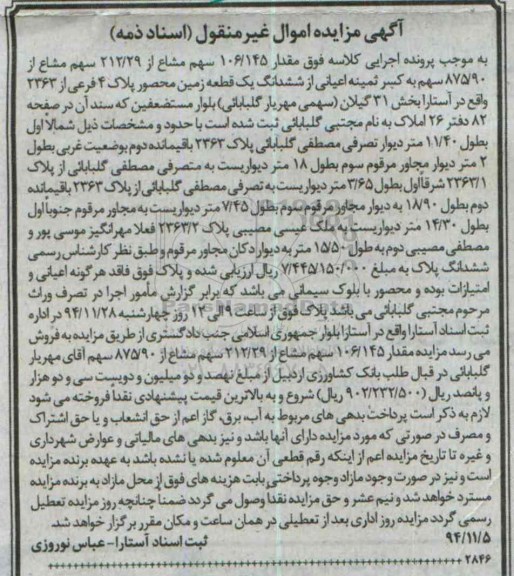 آگهی مزایده اموال غیرمنقول (اسناد ذمه)
به موجب پرونده اجرایی کلاسه فوق مقدار ۱۰۶/۱۴۵ سهم مشاع از ۲۱۲/۲۹ سهم مشاع از
۸۷۵/۹۰ سهم به کسر ثمینه اعیانی از ششدانگ یک قطعه زمین محصور پلاک ۴ فرعی از ۲۳۶۳
واقع در آستارا بخش ۳۱ گیلان (سهمی مهریار گلبابائی) بلوار مستضعفین که سند آن در صفحه
۸۲ دفتر ۲۶ املاک به نام مجتبی گلبابائی ثبت شده است با حدود و مشخصات ذیل شمالا اول
بطول ۱۱/۴۰ متر دیوار تصرفی مصطفی گلبابائی پلاک ۲۳۶۳ باقیمانده دوم بوضعیت غربی بطول
۲ متر دیوار مجاور مرقوم سوم بطول ۱۸ متر دیواریست به متصرفی مصطفی گلبابائی از پلاک
۲۳۶۳/۱ شرقا اول بطول ۳/۶۵ متر دیواریست به تصرفی مصطفی گلبابائی از پلاک ۲۳۶۳ باقیمانده
دوم بطول ۱۸/۹۰ به دیوار مجاور مرقوم سوم بطول ۷/۴۵ متر دیواریست به مجاور مرقوم جنوبا اول
بطول ۱۴/۳۰ متر دیواریست به ملک عیسی مصیبی پلاک ۲۳۶۳/۲ فعلا مهرانگیز موسی پور و
مصطفی مصیبی دوم به طول ۱۵/۵۰ متر به دیوار دکان مجاور مرقوم و طبق نظر کارشناس رسمی
ششدانگ پلاک به مبلغ ۷/۴۴۵/۱۵۰/۰۰۰ ریال ارزیابی شده و پلاک فوق فاقد هرگونه اعیانی و
امتیازات بوده و محصور با بلوک سیمانی می باشد که برابر گزارش مأمور اجرا در تصرف وراث
مرحوم مجتبی گلبابائی می باشد پلاک فوق از ساعت ۹ الی ۱۲ روز چهارشنبه ۹۴/۱۱/۲۸ در اداره
ثبت اسناد آستارا واقع در آستارا بلوار جمهوری اسلامی جنب دادگستری از طریق مزایده به فروش
می رسد مزایده مقدار ۱۰۶/۱۴۵ سهم مشاع از ۲۱۲/۲۹ سهم مشاع از ۸۷۵/۹۰ سهم آقای مهریار
گلبابائی در قبال طلب بانک کشاورزی اردبیل از مبلغ نهصد و دو میلیون و دویست سی و دو هزار
و پانصد ریال (۹۰۲/۲۳۲/۵۰۰ ریال) شروع و به بالاترین قیمت پیشنهادی نقدا فروخته می شود
لازم به ذکر است پرداخت بدهی های مربوط به آب، برق، گاز اعم از حق انشعاب و یا حق اشتراک
و مصرف در صورتی که مورد مزایده دارای آنها باشد و نیز بدهی های مالیاتی و عوارض شهرداری
و غیره تا تاریخ مزایده اعم از اینکه رقم قطعی آن معلوم شده یا نشده باشد به عهده برنده مزایده
است و نیز در صورت وجود مازاد وجوه پرداختی بابت هزینه های فوق از محل مازاد به برنده مزایده
مسترد خواهد شد و نیم عشر و حق مزایده نقدا وصول می گردد ضمنا چنانچه روز مزایده تعطیل
رسمی گردد مزایده روز اداری بعد از تعطیلی در همان ساعت و مکان مقرر برگزار خواهد شد
۹۴/۱۱/۵ ثبت اسناد آستارا- عباس نوروزی
۲۸۴۶